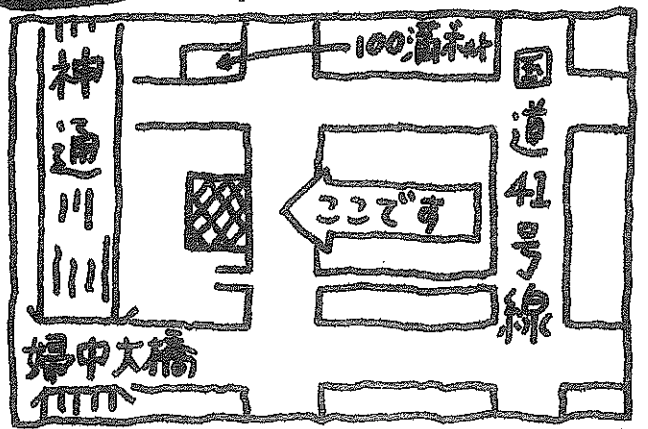 神通川
100満ボルト
国道41号線
ここです
婦中大橋